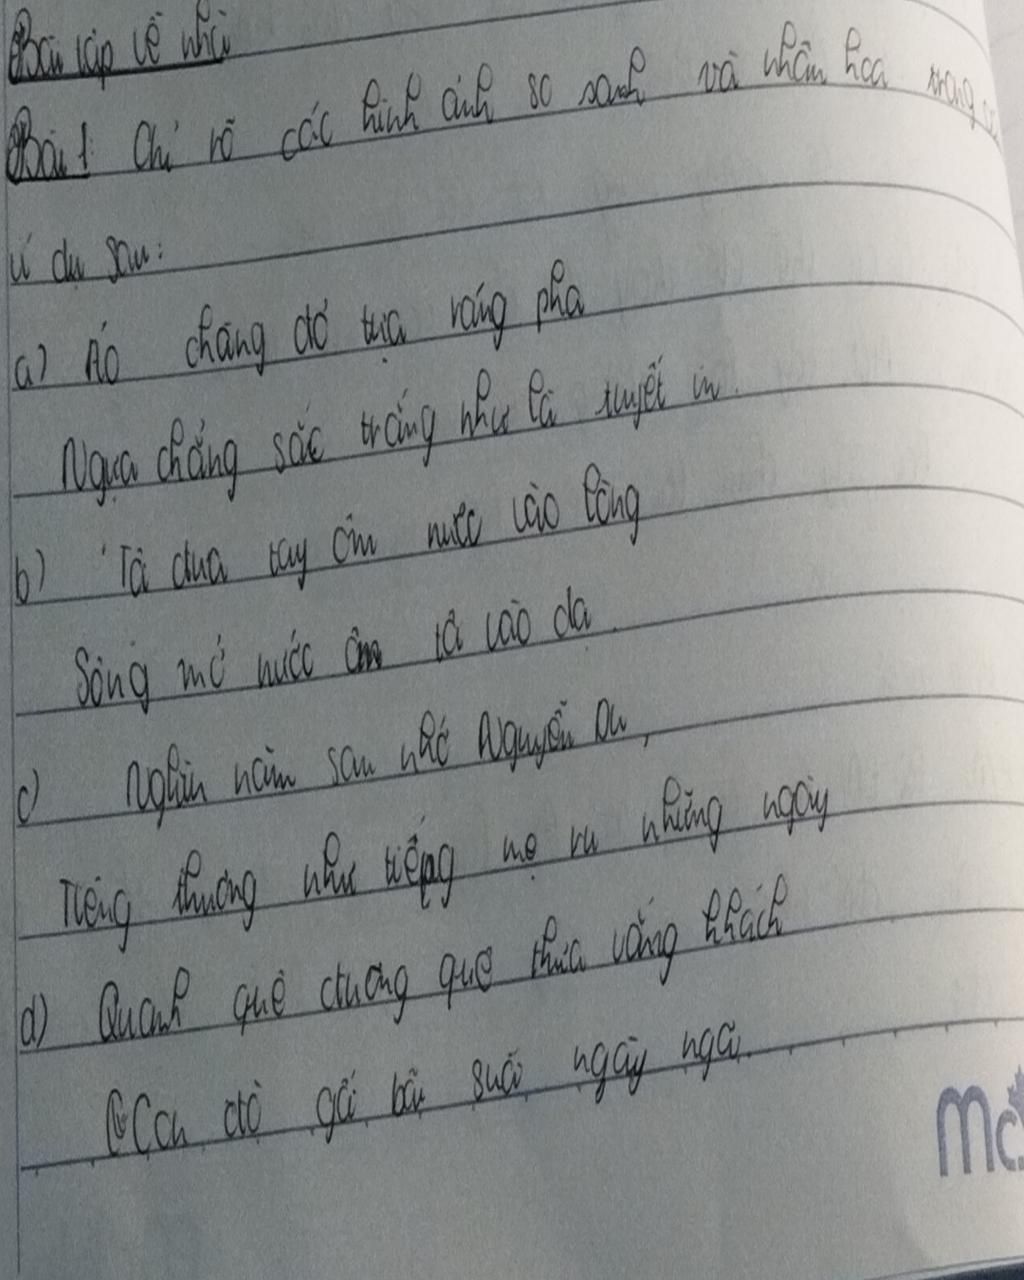 Bài tập về nhà
Bài 1: Chỉ rõ các hình ảnh so sánh và nhân hoá trong
ví dụ sau:
a) Áo chàng đỏ tựa ráng pha
Ngựa chàng sắc trắng như là tuyết in.
b) Ta đưa tay ôm nước vào lòng
Sông mở nước ôm ta vào dạ.
c) Nghìn năm sau nhớ Nguyễn Du,
Tiếng thương như tiếng mẹ ru những ngày
d) Quanh quẽ đường quê thưa vắng khách
Con đò gối bãi suốt ngày ngơi.
Mc